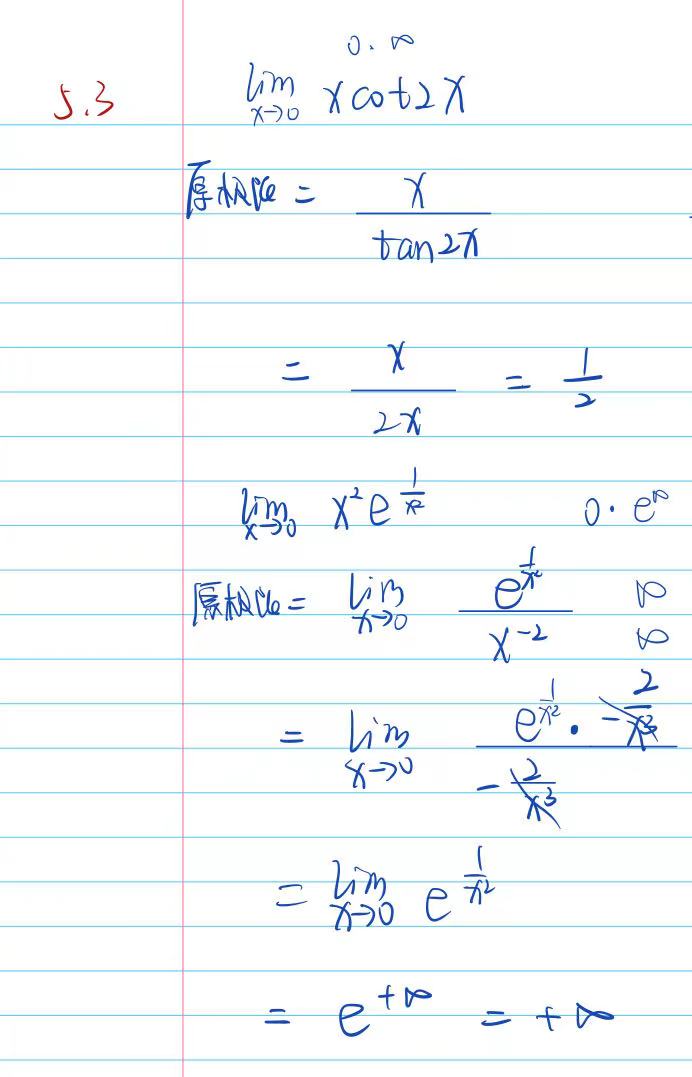 0·∞
5.3 lim x→0 x cot2x
原极限 = x / tan2x
= x / 2x = 1/2
lim x→0 x² e^(1/x²) 0·e^∞
原极限 = lim x→0 e^(1/x²) / x^(-2) ∞/∞
= lim x→0 (e^(1/x²) · -2/x³) / (-2/x³)
= lim x→0 e^(1/x²)
= e^(+∞) = +∞